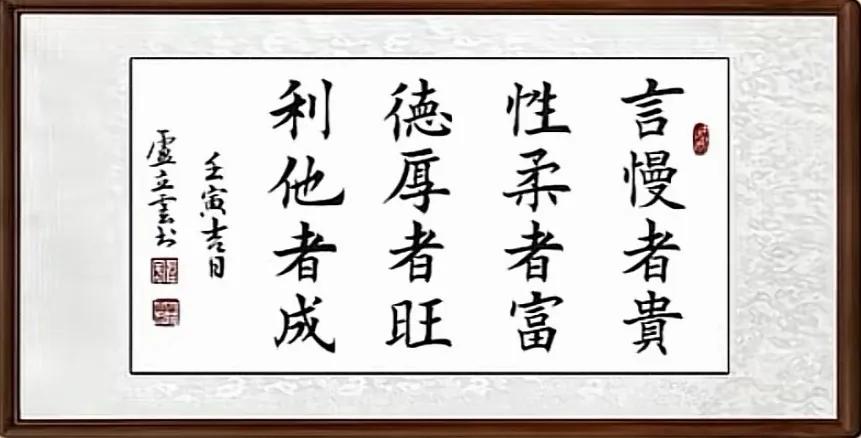 言慢者貴
性柔者富
德厚者旺
利他者成
壬寅吉日
盧立雲书